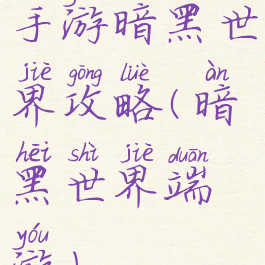 手游暗黑世
jiè gōng lüè àn
界攻略(暗
hēi shì jiè duān
黑世界端
yóu
游)